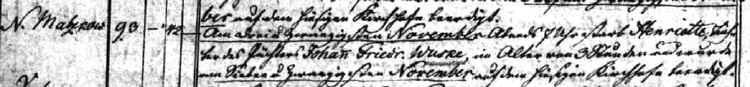 bis auf dem hiesigen Kirchhofe beerdigt.
N. Matzkow 93 - 42 - Am drei u zwanzigsten November Abends 7 Uhr starb Henriette, Toch-
ter des Pächters Johann Friedr. Wuske, im Alter von 3 Stunden und wurde
am Sieben u zwanzigsten November auf dem hiesigen Kirchhofe beerdigt.